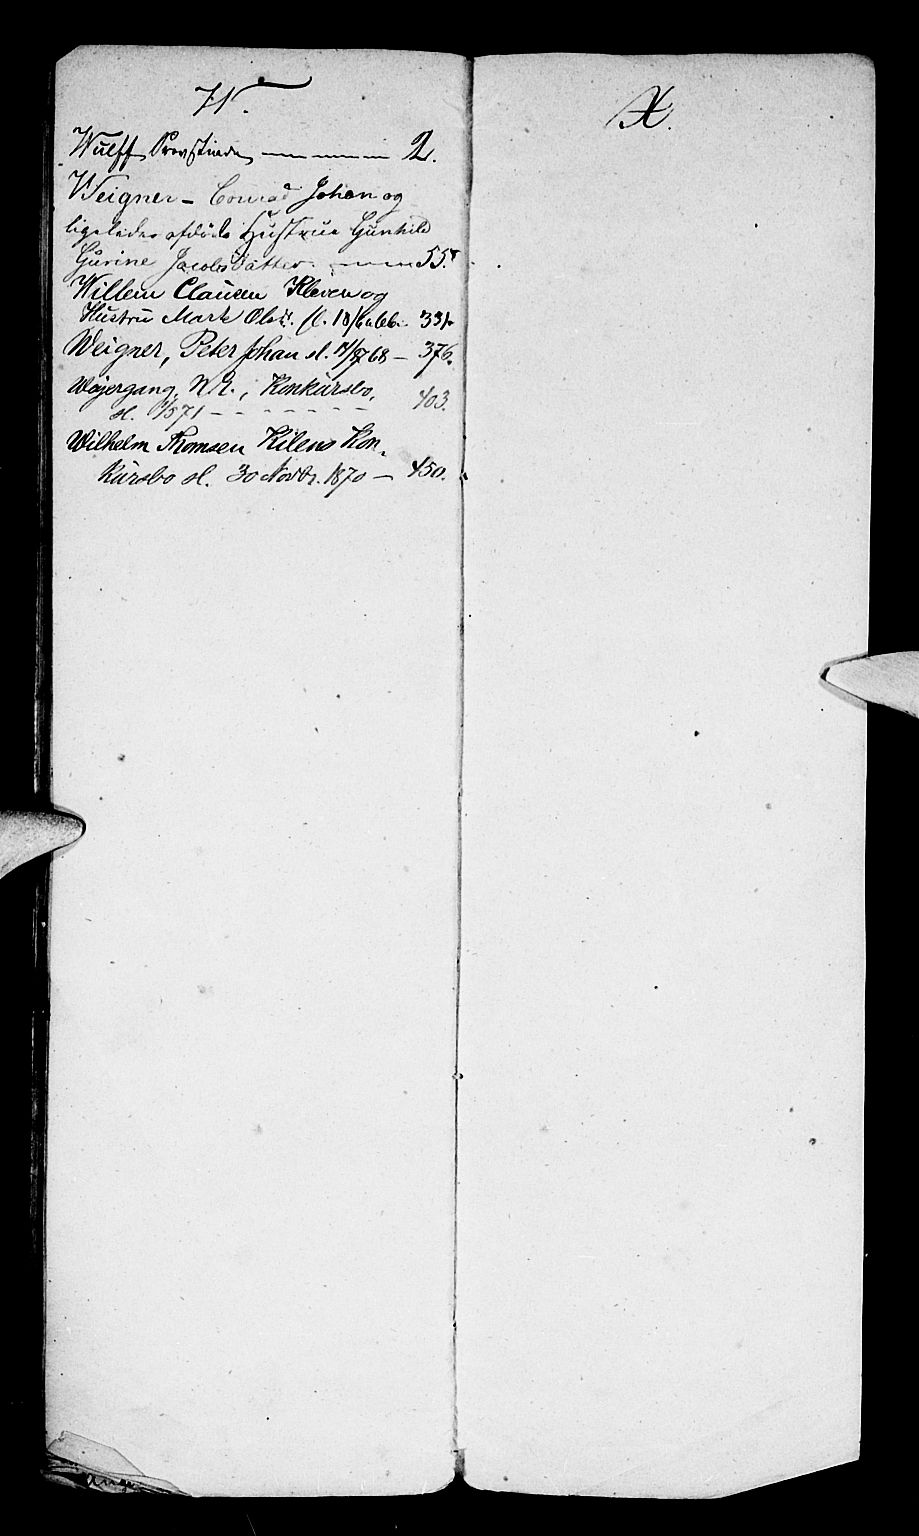 W.
Wulff Provstinde 2.
Weigner - Conrad Johan og
ligeledes afdøde Hustrue Gunhild
Gurine Jacobs Datter 55.
Willem Clausen Kleven og
Hustru Marte Olsd. sl. 18/6 66. 331.
Weigner, Peter Johan sl. 68 - 376.
Weiergang, N. E., Konkursbo,
sl. 1/5 71 - - - - - - - 403.
Wilhelm Thomsen Kilens Kon-
kursbo sl. 30 Novbr. 1870 - 450.
X.